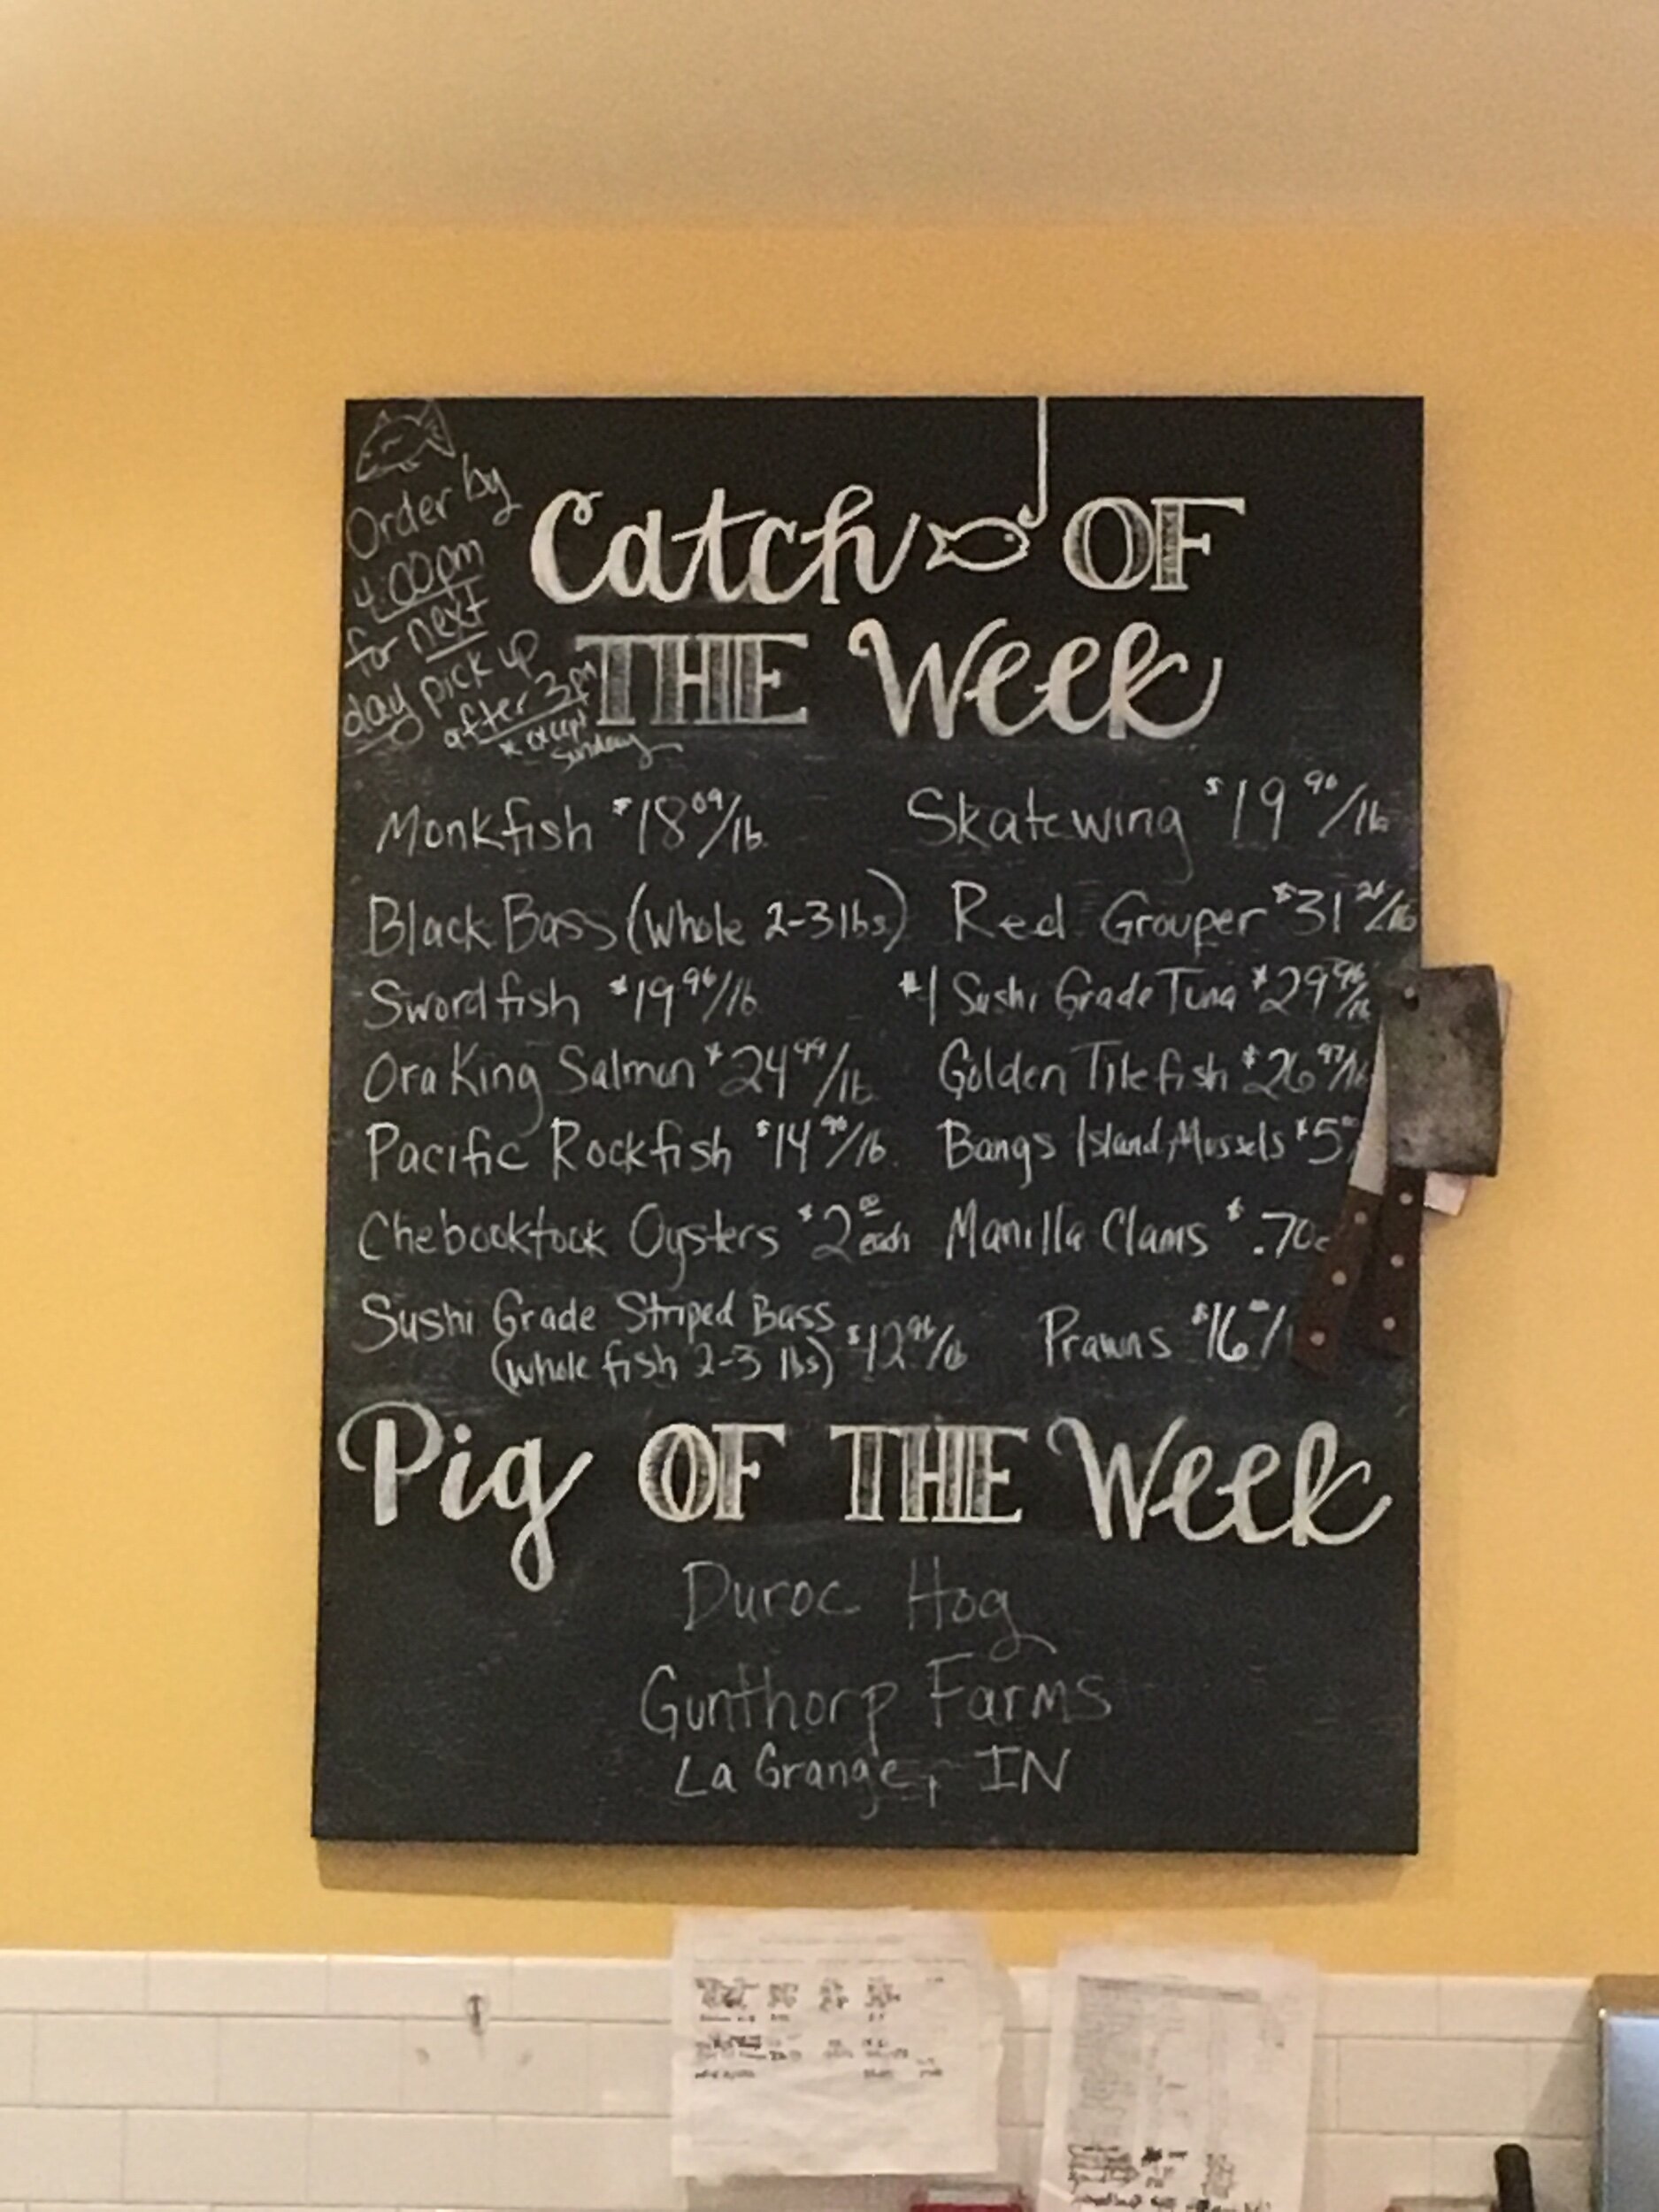 Order by
4:00pm
for next
day pick up
after 3pm
* except
Sunday
Catch OF
THE Week
Monkfish $18.09/lb
Skatewing $19.96/lb
Black Bass (Whole 2-3 lbs)
Red Grouper $31 /lb
Swordfish $19.96/lb
#1 Sushi Grade Tuna $29.96/lb
Ora King Salmon $24.99/lb
Golden Tilefish $26.97/lb
Pacific Rockfish $14.96/lb
Bangs Island Mussels $5
Chebooktook Oysters $2.00 each
Manilla Clams $.70
Sushi Grade Striped Bass
(whole fish 2-3 lbs) $12.96/lb
Prawns $16
Pig OF THE Week
Duroc Hog
Gunthorp Farms
La Grange, IN